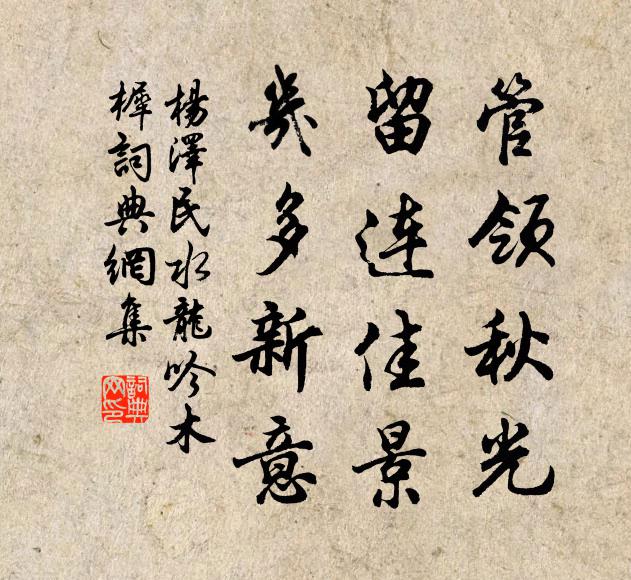 管领秋光
留连佳景
几多新意
楊澤民水龍吟木
樨詞典網集
詞典
网印